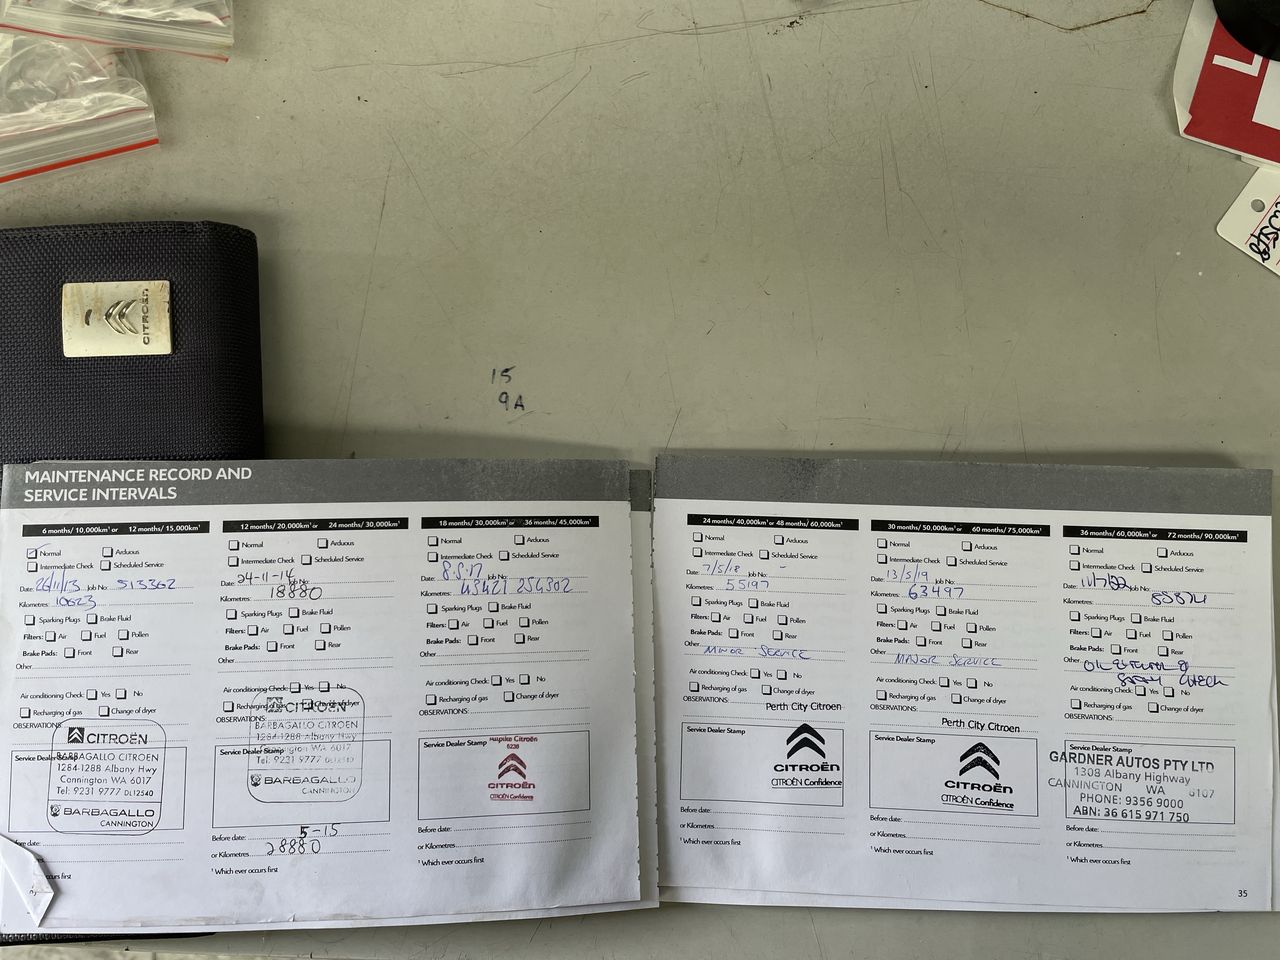 L
CITROËN
15
9A
MAINTENANCE RECORD AND
SERVICE INTERVALS
6 months/ 10,000km¹ or 12 months/ 15,000km¹
Normal Arduous
Intermediate Check Scheduled Service
Date: 26/11/13 Job No: 513362
Kilometres: 10623
Sparking Plugs Brake Fluid
Filters: Air Fuel Pollen
Brake Pads: Front Rear
Other
Air conditioning Check: Yes No
Recharging of gas Change of dryer
OBSERVATIONS:
Service Dealer Stamp
CITROËN
BARBAGALLO CITROEN
1284-1288 Albany Hwy
Cannington WA 6017
Tel: 9231 9777 DL12540
BARBAGALLO
CANNINGTON
date:
occurs first
12 months/ 20,000km¹ or 24 months/ 30,000km¹
Normal Arduous
Intermediate Check Scheduled Service
Date: 24-11-14 Job No:
18880
Sparking Plugs Brake Fluid
Filters: Air Fuel Pollen
Brake Pads: Front Rear
Other
Air conditioning Check: Yes No
Recharging of gas Change of dryer
OBSERVATIONS:
Service Dealer Stamp
CITROËN
BARBAGALLO CITROEN
1284-1288 Albany Hwy
Cannington WA 6017
Tel: 9231 9777 DL12540
BARBAGALLO
CANNINGTON
Before date: 5-15
or Kilometres: 28880
¹ Which ever occurs first
18 months/ 30,000km¹ or 36 months/ 45,000km¹
Normal Arduous
Intermediate Check Scheduled Service
Date: 8.5.17 Job No:
Kilometres: 43421 254302
Sparking Plugs Brake Fluid
Filters: Air Fuel Pollen
Brake Pads: Front Rear
Other
Air conditioning Check: Yes No
Recharging of gas Change of dryer
OBSERVATIONS:
Service Dealer Stamp
Citroën
6236
CITROËN
CITROËN Confidence
Before date:
or Kilometres:
¹ Which ever occurs first
24 months/ 40,000km¹ or 48 months/ 60,000km¹
Normal Arduous
Intermediate Check Scheduled Service
Date: 7/5/18 -
Kilometres: 55197
Sparking Plugs Brake Fluid
Filters: Air Fuel Pollen
Brake Pads: Front Rear
Other MINOR SERVICE
Air conditioning Check: Yes No
Recharging of gas Change of dryer
OBSERVATIONS:
Perth City Citroen
Service Dealer Stamp
CITROËN
CITROËN Confidence
Before date:
or Kilometres:
¹ Which ever occurs first
30 months/ 50,000km¹ or 60 months/ 75,000km¹
Normal Arduous
Intermediate Check Scheduled Service
Date: 13/5/19 Job No:
Kilometres: 63497
Sparking Plugs Brake Fluid
Filters: Air Fuel Pollen
Brake Pads: Front Rear
Other MAJOR SERVICE
Air conditioning Check: Yes No
Recharging of gas Change of dryer
OBSERVATIONS:
Perth City Citroen
Service Dealer Stamp
CITROËN
CITROËN Confidence
Before date:
or Kilometres:
¹ Which ever occurs first
36 months/ 60,000km¹ or 72 months/ 90,000km¹
Normal Arduous
Intermediate Check Scheduled Service
Date: 11/7/22 Job No:
Kilometres: 85874
Sparking Plugs Brake Fluid
Filters: Air Fuel Pollen
Brake Pads: Front Rear
Other OIL &
CHECK
Air conditioning Check: Yes No
Recharging of gas Change of dryer
OBSERVATIONS:
Service Dealer Stamp
GARDNER AUTOS PTY LTD
1308 Albany Highway
CANNINGTON WA 6107
PHONE: 9356 9000
ABN: 36 615 971 750
Before date:
or Kilometres:
¹ Which ever occurs first
35